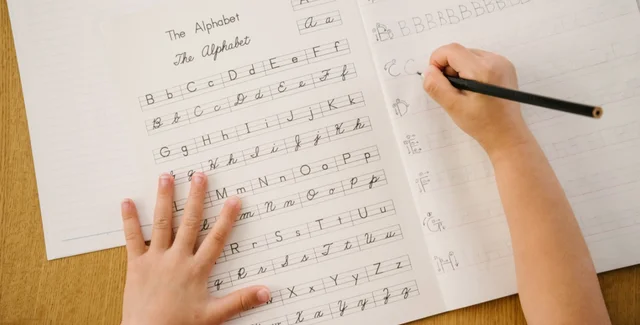 The Alphabet
The Alphabet
A a
B b C c D d E e F f
B b C c D d E e F f
G g H h I i J j K k
g H h I i J j K k
L M m N n O o P p
m N n O o P p
R r S s T t U u
q R r S s T t U u
X x Y y Z z
X x Y y Z z
B BBBBBBBBBB
C C
D
E
F
G
H